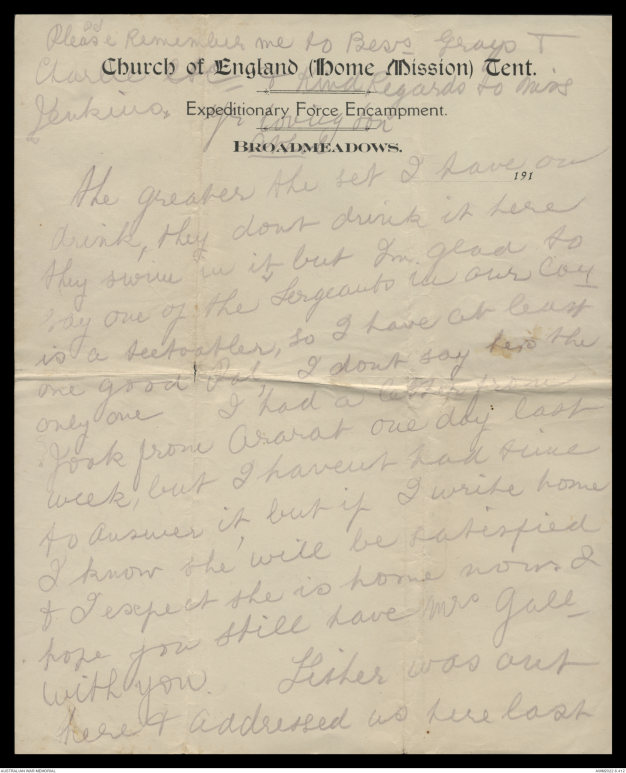 Please Remember me to Bess Grays &
Charlie & Kind Regards to Miss
Jenkins.
Church of England (Home Mission) Tent.
Expeditionary Force Encampment.
BROADMEADOWS.
191
the greater the set I have on
drink, they dont drink it here
they swim in it but Im glad to
say one of the Sergeants in our Coy
is a teetoatler, so I have at least
one good Pal, I dont say hes the
only one I had a letter from
from Ararat one day last
week, but I havent had time
to answer it, but if I write home
I know she will be satisfied
& I expect she is home now & I
hope you still have Mrs Gall
with you. Fisher was out
here & addressed us here last
AUSTRALIAN WAR MEMORIAL